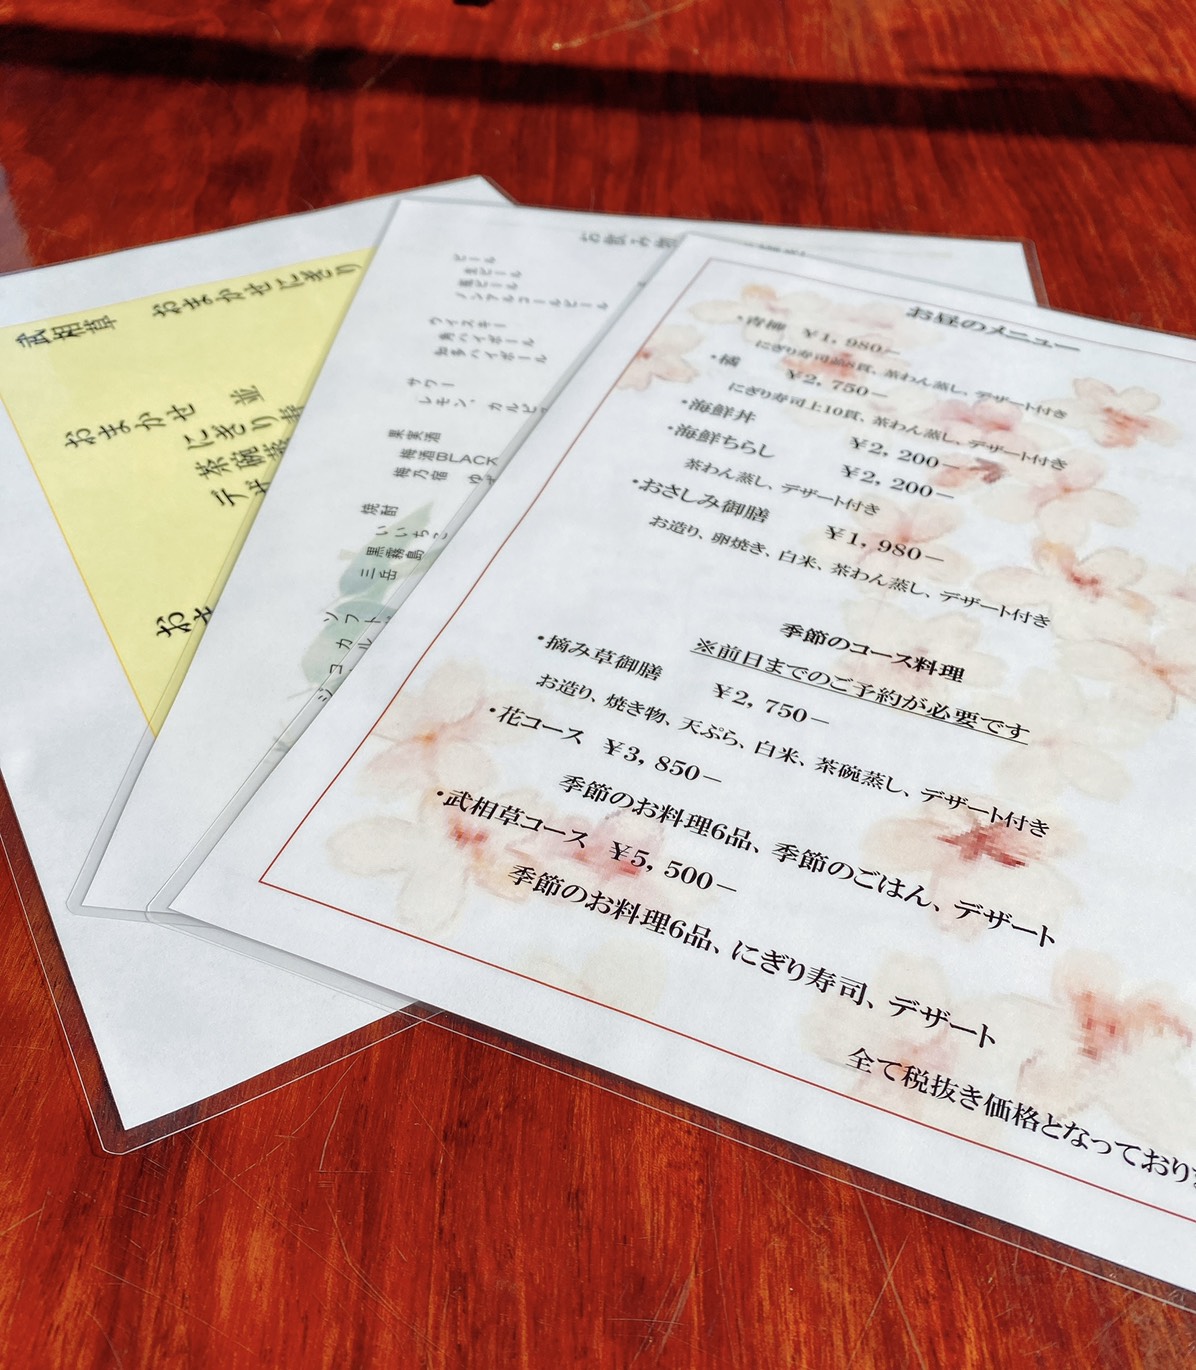 武相草 おまかせにぎり
おまかせ 並
にぎり寿
茶碗蒸
デザ
お飲み物
ビール
生ビール
瓶ビール
ノンアルコールビール
ウイスキー
角ハイボール
知多ハイボール
サワー
レモン、カルピス
果実酒
梅酒BLACK
梅乃宿 ゆず
焼酎
いいちこ
黒霧島
三岳
ソフト
カル
コー
お昼のメニュー
・青柳 ¥1,980−
にぎり寿司並8貫、茶わん蒸し、デザート付き
・橘 ¥2,750−
にぎり寿司上10貫、茶わん蒸し、デザート付き
・海鮮丼 ¥2,200−
・海鮮ちらし ¥2,200−
茶わん蒸し、デザート付き
・おさしみ御膳 ¥1,980−
お造り、卵焼き、白米、茶わん蒸し、デザート付き
季節のコース料理
※前日までのご予約が必要です
・摘み草御膳 ¥2,750−
お造り、焼き物、天ぷら、白米、茶碗蒸し、デザート付き
・花コース ¥3,850−
季節のお料理6品、季節のごはん、デザート
・武相草コース ¥5,500−
季節のお料理6品、にぎり寿司、デザート
全て税抜き価格となっており